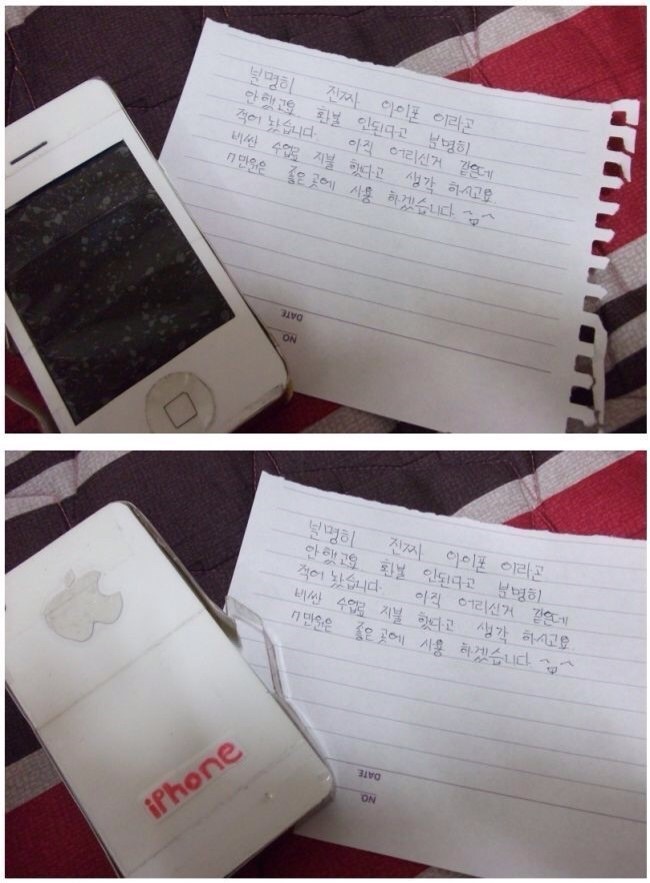 분명히 진짜 아이폰 이라곤
안했고요. 환불 안된다고 분명히
적어 놨습니다. 아직 어리신거 같은데
비싼 수업료 지불 했다고 생각 하시고요.
7만원은 좋은곳에 사용 하겠습니다. ^ㅛ^
DATE
NO.
분명히 진짜 아이폰 이라곤
안했고요 환불 안된다고 분명히
적어 놨습니다. 아직 어리신거 같은데
비싼 수업료 지불 했다고 생각 하시고요.
7만원은 좋은곳에 사용 하겠습니다. ^ㅛ^
iPhone
DATE
NO.